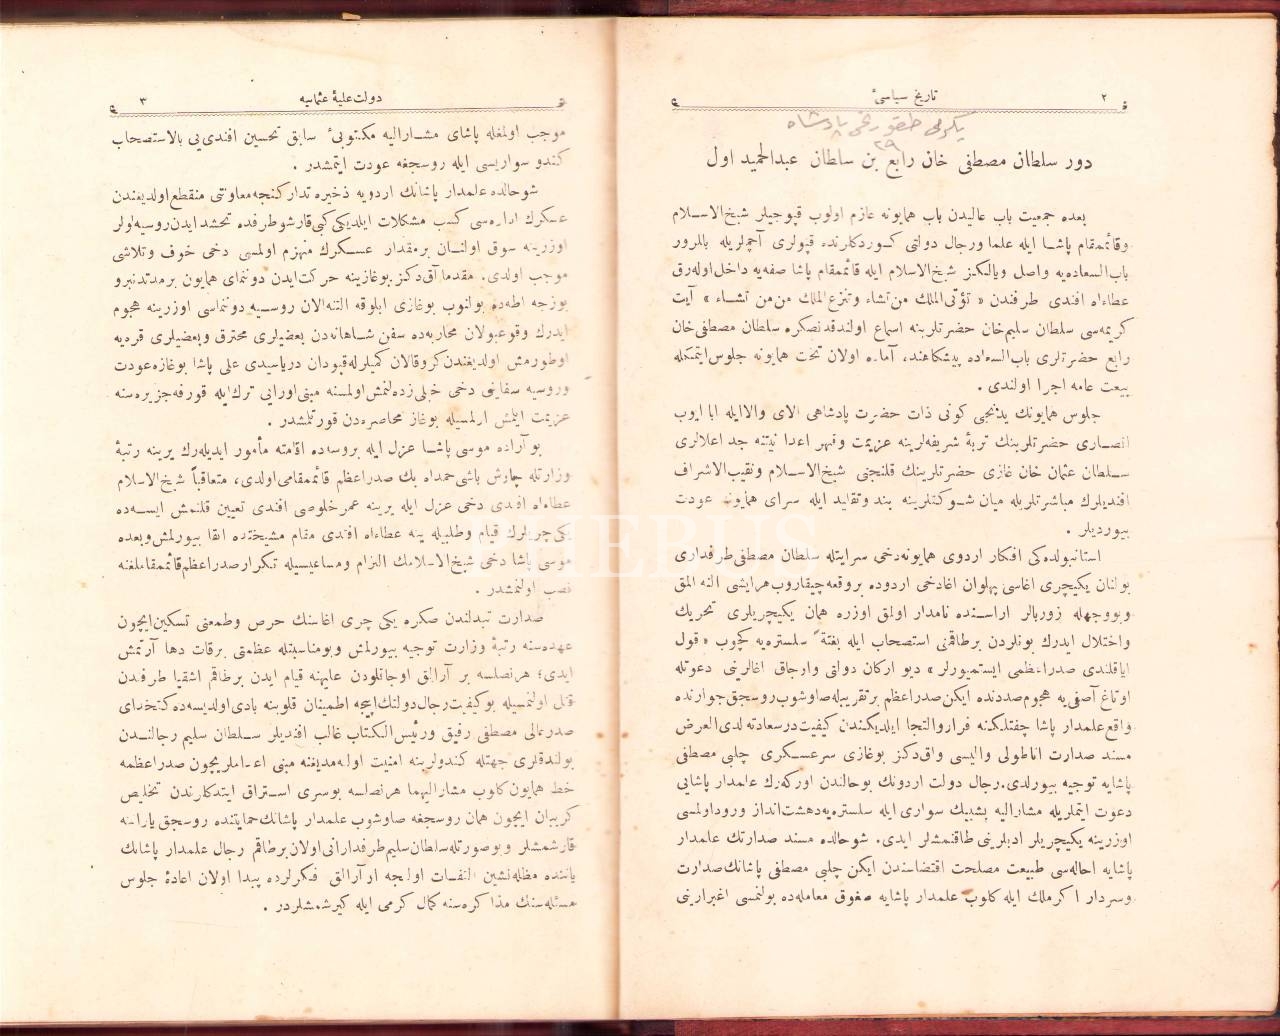 ٢
تاريخ سياسئ
يكرمى طقوزنجى پادشاه
٢٩
دور سلطان مصطفى خان رابع بن سلطان عبدالحميد اول
بعده جمعيت باب عاليدن باب همايونه عازم اولوب قپوجيلر شيخ الاسلام
وقائممقام پاشا ايله علما ورجال دولتى كوردكلرنده قپولرى آچملريله بالمرور
باب السعاده يه واصل ويالكز شيخ الاسلام ايله قائممقام پاشا صفه يه داخل اوله رق
عطاءاه افندى طرفندن « تؤتى الملك من تشاء وتنزع الملك ممن تشاء » آيت
كريمه سى سلطان سليم خان حضرتلرينه اسماع اولندقدنصكره سلطان مصطفى خان
رابع حضرتلرى باب السعاده پيشكاهند، آماده اولان تخت همايونه جلوس ايتمكله
بيعت عامه اجرا اولندى .
جلوس همايونك يدنجى كونى ذات حضرت پادشاهى الاى والا ايله ابا ايوب
انصارى حضرتلرينك تربۀ شريفه لرينه عزيمت وقهر اعدا نيتنه جد اعلالرى
سلطان عثمان خان غازى حضرتلرينك قلنجنى شيخ الاسلام ونقيب الاشراف
افنديلرك مباشرتلريله ميان شوكتلرينه بند وتقليد ايله سراى همايونه عودت
بيورديلر .
استانبولده كى افكار اردوى همايونه دخى سرايتله سلطان مصطفى طرفدارى
بولنان يكيچرى اغاسى پهلوان اغا دخى اردوده بروقعه چيقاروب هرايشى الته المق
وبووجهله زوربالر اراسنده نامدار اولمق اوزره همان يكيچريلرى تحريك
واختلال ايدرك بونلردن برطاقمنى استصحاب ايله بغتةً سلستره يه كچوب « قول
اياقلندى صدراعظمى ايستميورلر » ديو اركان دولتى واوجاق اغالرينى دعوتله
اوتاغ آصفى يه هجوم صددنده ايكن صدراعظم برتقريبله صاوشوب روسجق جوارنده
واقع علمدار پاشا چفتلكنه فرار والتجا ايلديكندن كيفيت درسعادته لدى العرض
مسند صدارت اناطولى واليسى واق دكز بوغازى سرعسكرى چلبى مصطفى
پاشايه توجيه بيورلدى. رجال دولت اردونك بوحالندن اوركه رك علمدار پاشايى
دعوت ايتملريله مشاراليه بشبيك سوارى ايله سلستره يه دهشت انداز ورود اولمسى
اوزرينه يكيچريلر ادبلرينى طاقنمشلر ايدى. شوحالده مسند صدارتك علمدار
پاشايه احاله سى طبيعت مصلحت اقتضاسندن ايكن چلبى مصطفى پاشانك صدارت
وسردار اكرملك ايله كلوب علمدار پاشايه صغوق معامله ده بولنمسى اغبرارينى
دولت عليۀ عثمانيه
٣
موجب اولمغله پاشاى مشاراليه مكتوبئ سابق تحسين افندى يى بالاستصحاب
كندو سواريسى ايله روسجغه عودت ايتمشدر .
شوحالده علمدار پاشانك اردويه ذخيره تداركنجه معاونتى منقطع اولديغندن
عسكرك اداره سى كسب مشكلات ايلديكى كبى قارشو طرفده تحشد ايدن روسيه لولر
اوزرينه سوق اولنان برمقدار عسكرك منهزم اولمسى دخى خوف وتلاشى
موجب اولدى. مقدما آق دكز بوغازينه حركت ايدن دونماى همايون برمدتدنبرو
بوزجه اطه ده بولنوب بوغازى ابلوقه التنه الان روسيه دونماسى اوزرينه هجوم
ايدرك وقوعبولان محاربه ده سفن شاهانه دن بعضيلرى محترق وبعضيلرى قره يه
اوطورمش اولديغندن كروقالان كميلرله قپودان درياسيدى على پاشا بوغازه عودت
وروسيه سفاينى دخى خيلى زده لنمش اولمسنه مبنى اورايى ترك ايله قورفه جزيره سنه
عزيمت ايلمش ارلمسيله بوغاز محاصره دن قورتلمشدر .
بو آراده موسى پاشا عزل ايله بروسه ده اقامته مأمور ايديله رك يرينه رتبۀ
وزارتله چاوش باشى حمداه بك صدراعظم قائممقامى اولدى، متعاقباً شيخ الاسلام
عطاءاه افندى دخى عزل ايله يرينه عمر خلوصى افندى تعيين قلنمش ايسه ده
يكيچريلرك قيام وطلبيله ينه عطاءاه افندى مقام مشيختده ابقا بيورلمش وبعده
موسى پاشا دخى شيخ الاسلامك التزام ومساعيسيله تكرار صدراعظم قائممقاملغنه
نصب اولنمشدر .
صدارت تبدلندن صكره يكى چرى اغاسنك حرص وطمعنى تسكين ايچون
عهده سنه رتبۀ وزارت توجيه بيورلمش وبومناسبتله عظمتى برقات دها آرتمش
ايدى؛ هرنصلسه بر آرالق اوجاقلودن عليهنه قيام ايدن برطاقم اشقيا طرفندن
قتل اولنمسيله بوكيفيت رجال دولتك ايچه اطمينان قلوبنه بادى اولديسه ده كتخداى
صدرعالى مصطفى رفيق ورئيس الكتاب غالب افنديلر سلطان سليم رجالندن
بولندقلرى جهتله كندولرينه امنيت اوله مديغنه مبنى اعداملريچون صدراعظمه
خط همايون كلوب مشاراليهما هرنصلسه بوسرى استراق ايتدكلرندن تخليص
كريبان ايچون همان روسجغه صاوشوب علمدار پاشانك حمايتنده روسجق يارانه
قارشمشلر وبوصورتله سلطان سليم طرفدارانى اولان برطاقم رجال علمدار پاشانك
ياننده مظله نشين التفات اولنجه او آرالق فكرلرده پيدا اولان اعادۀ جلوس
مسئله سنك مذاكره سنه كمال كرمى ايله كيرشمشلردر .
PHEBUS